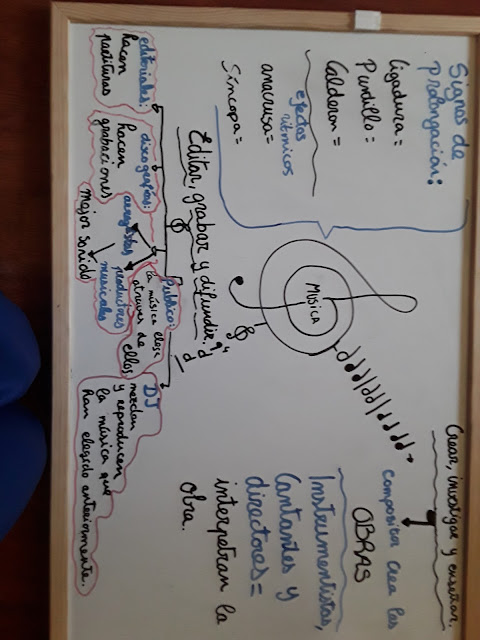 Signos de
prolongación:
ligadura =
Puntillo =
Calderon =
efectos
ritmicos
anacrusa =
Síncopa =
MUSICA
Crear, investigar y enseñar.
compositor crea las
OBRAS
Instrumentistas,
Cantantes y
directores =
interpretran la
obra.
Editar, grabar y difundir.
editoriales:
hacen
partituras
discografías:
hacen
grabaciones
arreglistas
productores
musicales
mejor sonido
Publico:
la música llega
atraves de
ellos
DJ
mezclan
y reproducen
la música que
han elegido anteriormente.